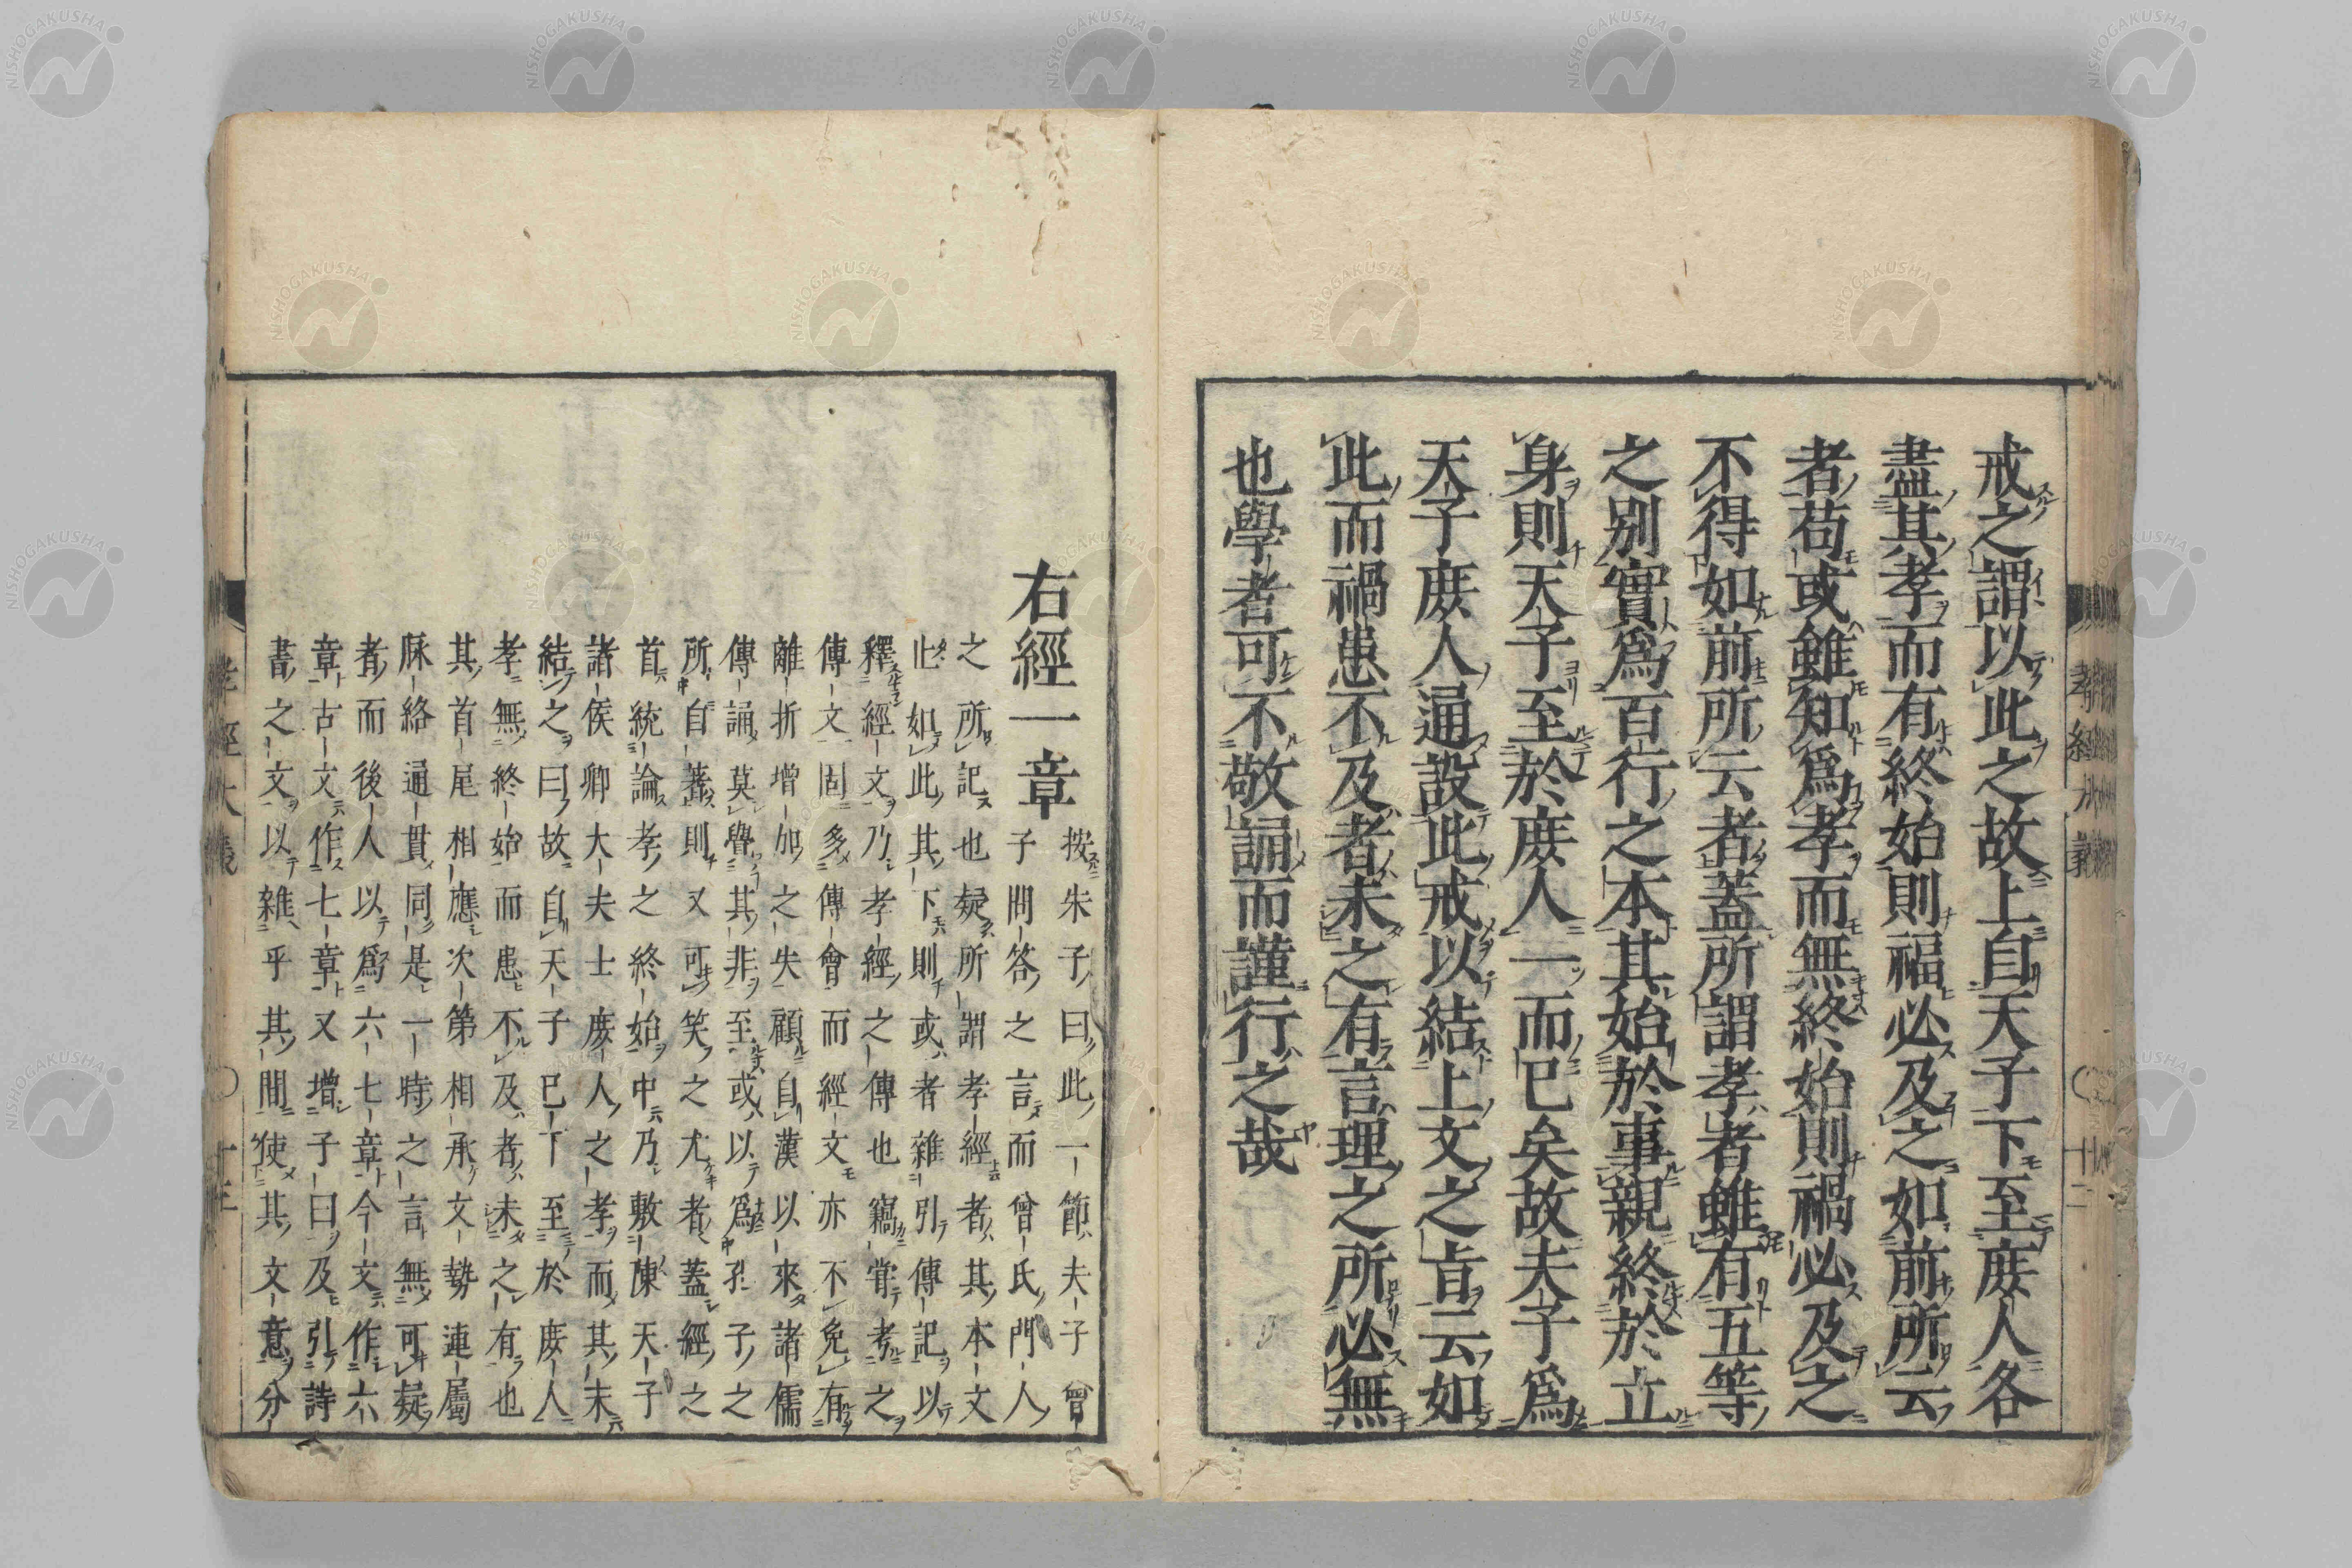 戒之謂以此之故上自天子下至庻人各
盡其孝而有終始則福必及之如前所云
者苟或雖知爲孝而無終始則禍必及之
不得如前所云者蓋所謂孝者雖有五等
之别實爲百行之本其始於事親終於立
身則天子至於庻人一而已矣故夫子爲
天子庻人通設此戒以結上文之㫖云如
此而禍患不及者未之有言理之所必無
也學者可不敬誦而謹行之哉
右經一章
按朱子曰此一節夫子曾
子問答之言而曾氏門人
之所記也疑所謂孝經者其本文
止如此其下則或者雜引傳記以
釋經文乃孝經之傳也竊甞考之
傳文固多傳會而經文亦不免有
離折增加之失顧自漢以來諸儒
傳誦莫覺其非至或以爲孔子之
所自著則又可笑之尤者蓋經之
首統論孝之終始中乃敷陳天子
諸侯卿大夫士庻人之孝而其末
結之曰故自天子已下至於庻人
孝無終始而患不及者未之有也
其首尾相應次第相承文勢連屬
脉絡通貫同是一時之言無可疑
者而後人以爲六七章今文作六
章古文作七章又增子曰及引詩
書之文以雜乎其間使其文意分
孝經大義
十二
NISHOGAKUSHA